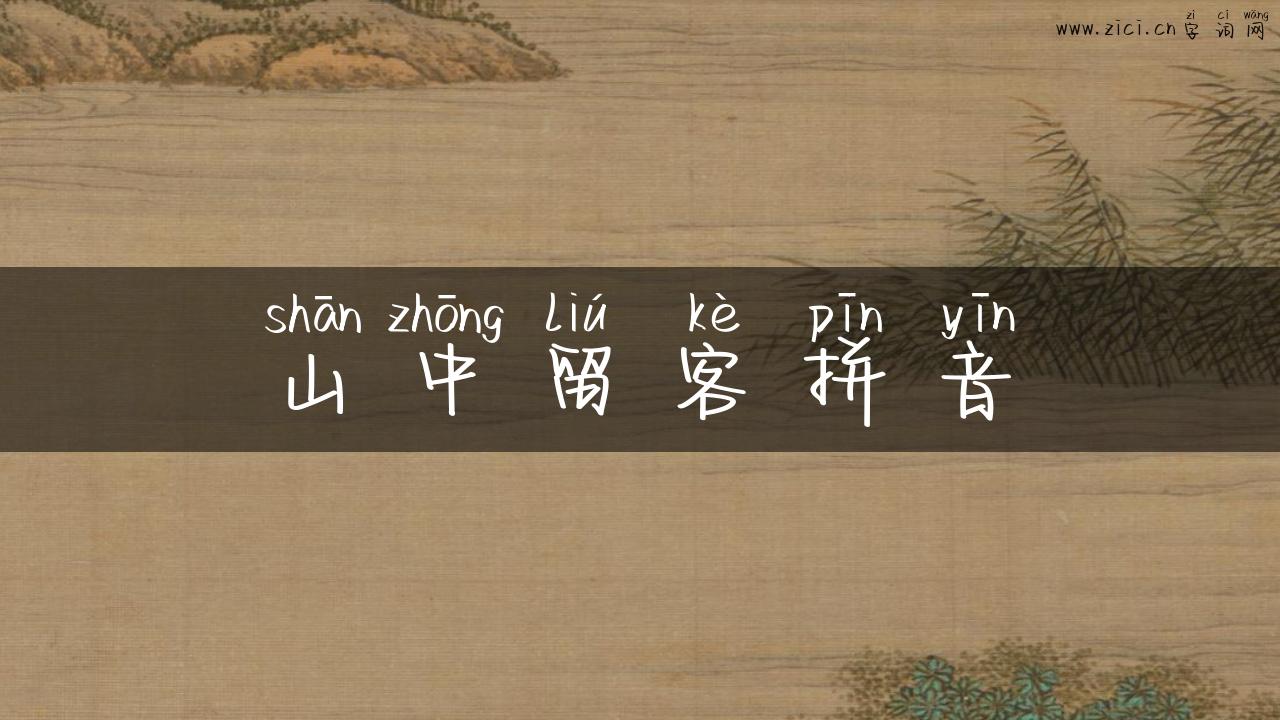 zì cí wǎng
www.zici.cn 字词网
shān zhōng liú kè pīn yīn
山中留客拼音